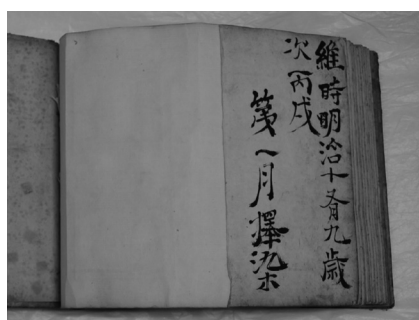 維時明治十有九歳
次丙戌
第一月擇染